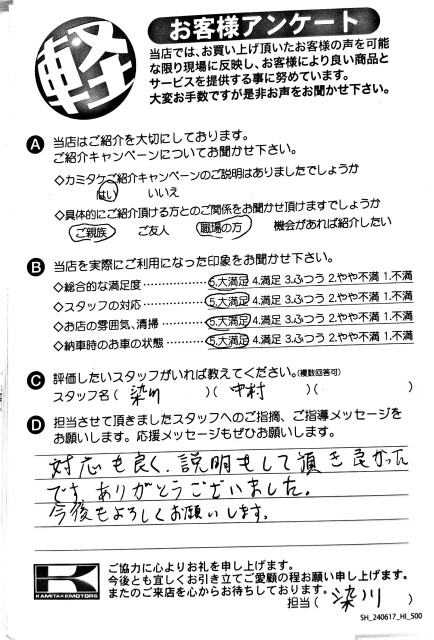 軽
お客様アンケート
当店では、お買い上げ頂いたお客様の声を可能
な限り現場に反映し、お客様により良い商品と
サービスを提供する事に努めています。
大変お手数ですが是非お声をお聞かせ下さい。
A 当店はご紹介を大切にしております。
ご紹介キャンペーンについてお聞かせ下さい。
◇カミタケご紹介キャンペーンのご説明はありましたでしょうか
はい いいえ
◇具体的にご紹介頂ける方とのご関係をお聞かせ頂けますでしょうか
ご親族 ご友人 職場の方 機会があれば紹介したい
B 当店を実際にご利用になった印象をお聞かせ下さい。
◇総合的な満足度………………5.大満足 4.満足 3.ふつう 2.やや不満 1.不満
◇スタッフの対応………………5.大満足 4.満足 3.ふつう 2.やや不満 1.不満
◇お店の雰囲気、清掃…………5.大満足 4.満足 3.ふつう 2.やや不満 1.不満
◇納車時のお車の状態…………5.大満足 4.満足 3.ふつう 2.やや不満 1.不満
C 評価したいスタッフがいれば教えてください。(複数回答可)
スタッフ名( 染川 )( 中村 )( )
D 担当させて頂きましたスタッフへのご指摘、ご指導メッセージを
お願いします。応援メッセージもぜひお願いします。
対応も良く、説明もして頂き良かった
です。ありがとうございました。
今後もよろしくお願いします。
K
KAMITAKEMOTORS
ご協力に心よりお礼を申し上げます。
今後とも宜しくお引き立てご愛顧の程お願い申し上げます。
またのご来店を心からお待ちしております。
担当( 染川 )
SH_240617_HI_500